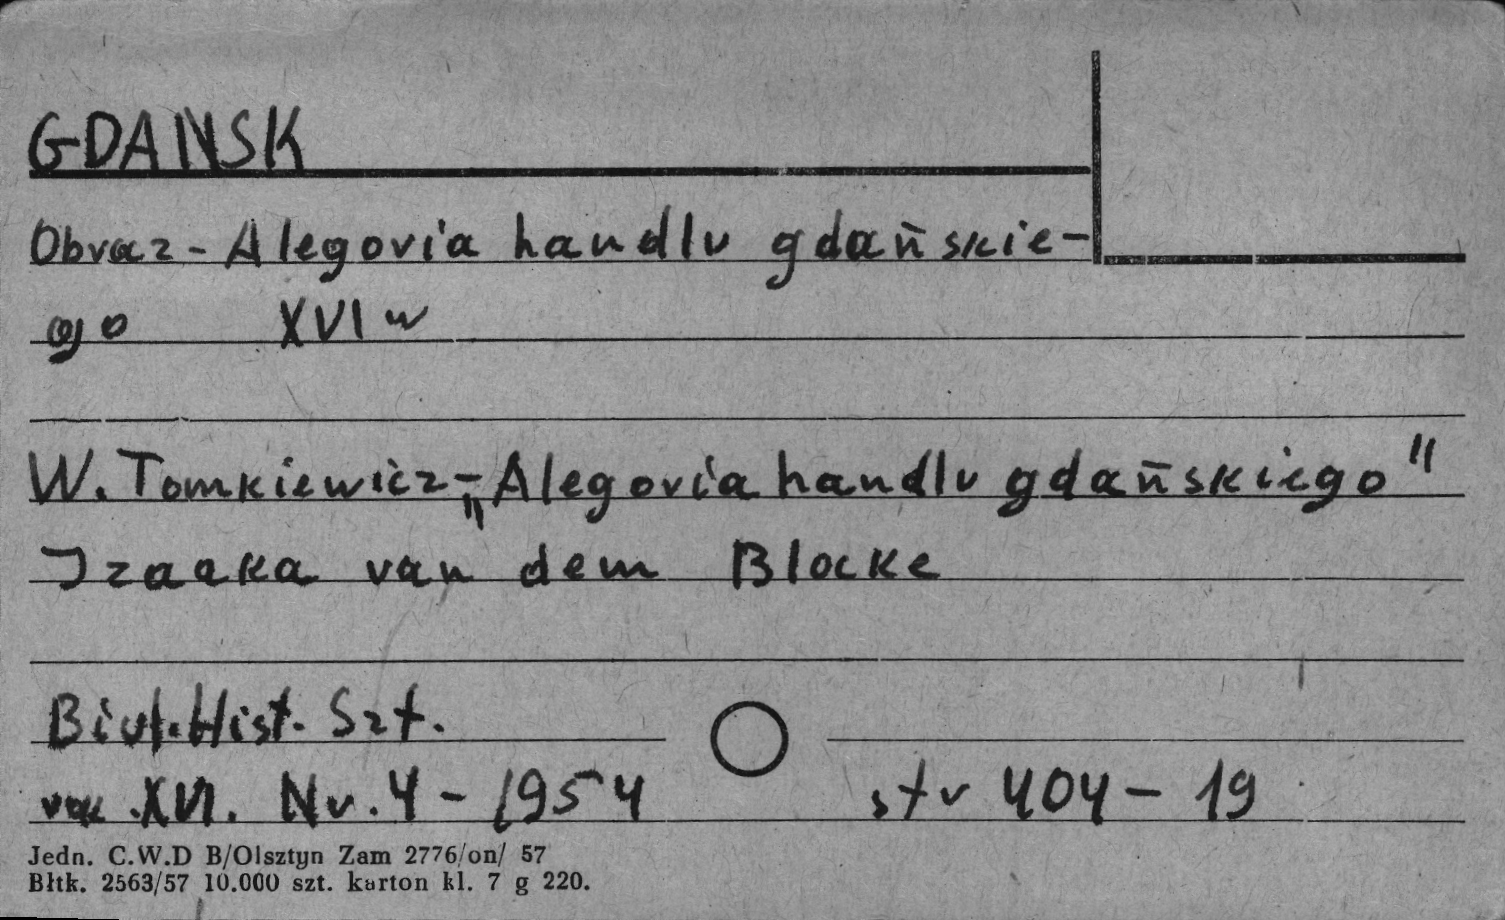 GDANSK
Obraz - Alegoria handlu gdańskie-
go XVI w
W. Tomkiewicz - „Alegoria handlu gdańskiego"
Izaaka van dem Blocke
Biul. Hist. Szt.
rok XVI. Nr. 4 - 1954 str 404 - 19
Jedn. C.W.D B/Olsztyn Zam 2776/on/ 57
Błtk. 2563/57 10.000 szt. karton kl. 7 g 220.